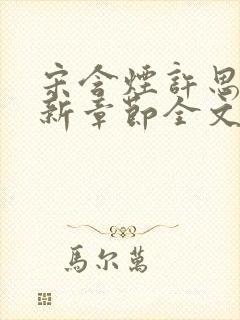 宋含煙許思
新章節全文
馬尔萬